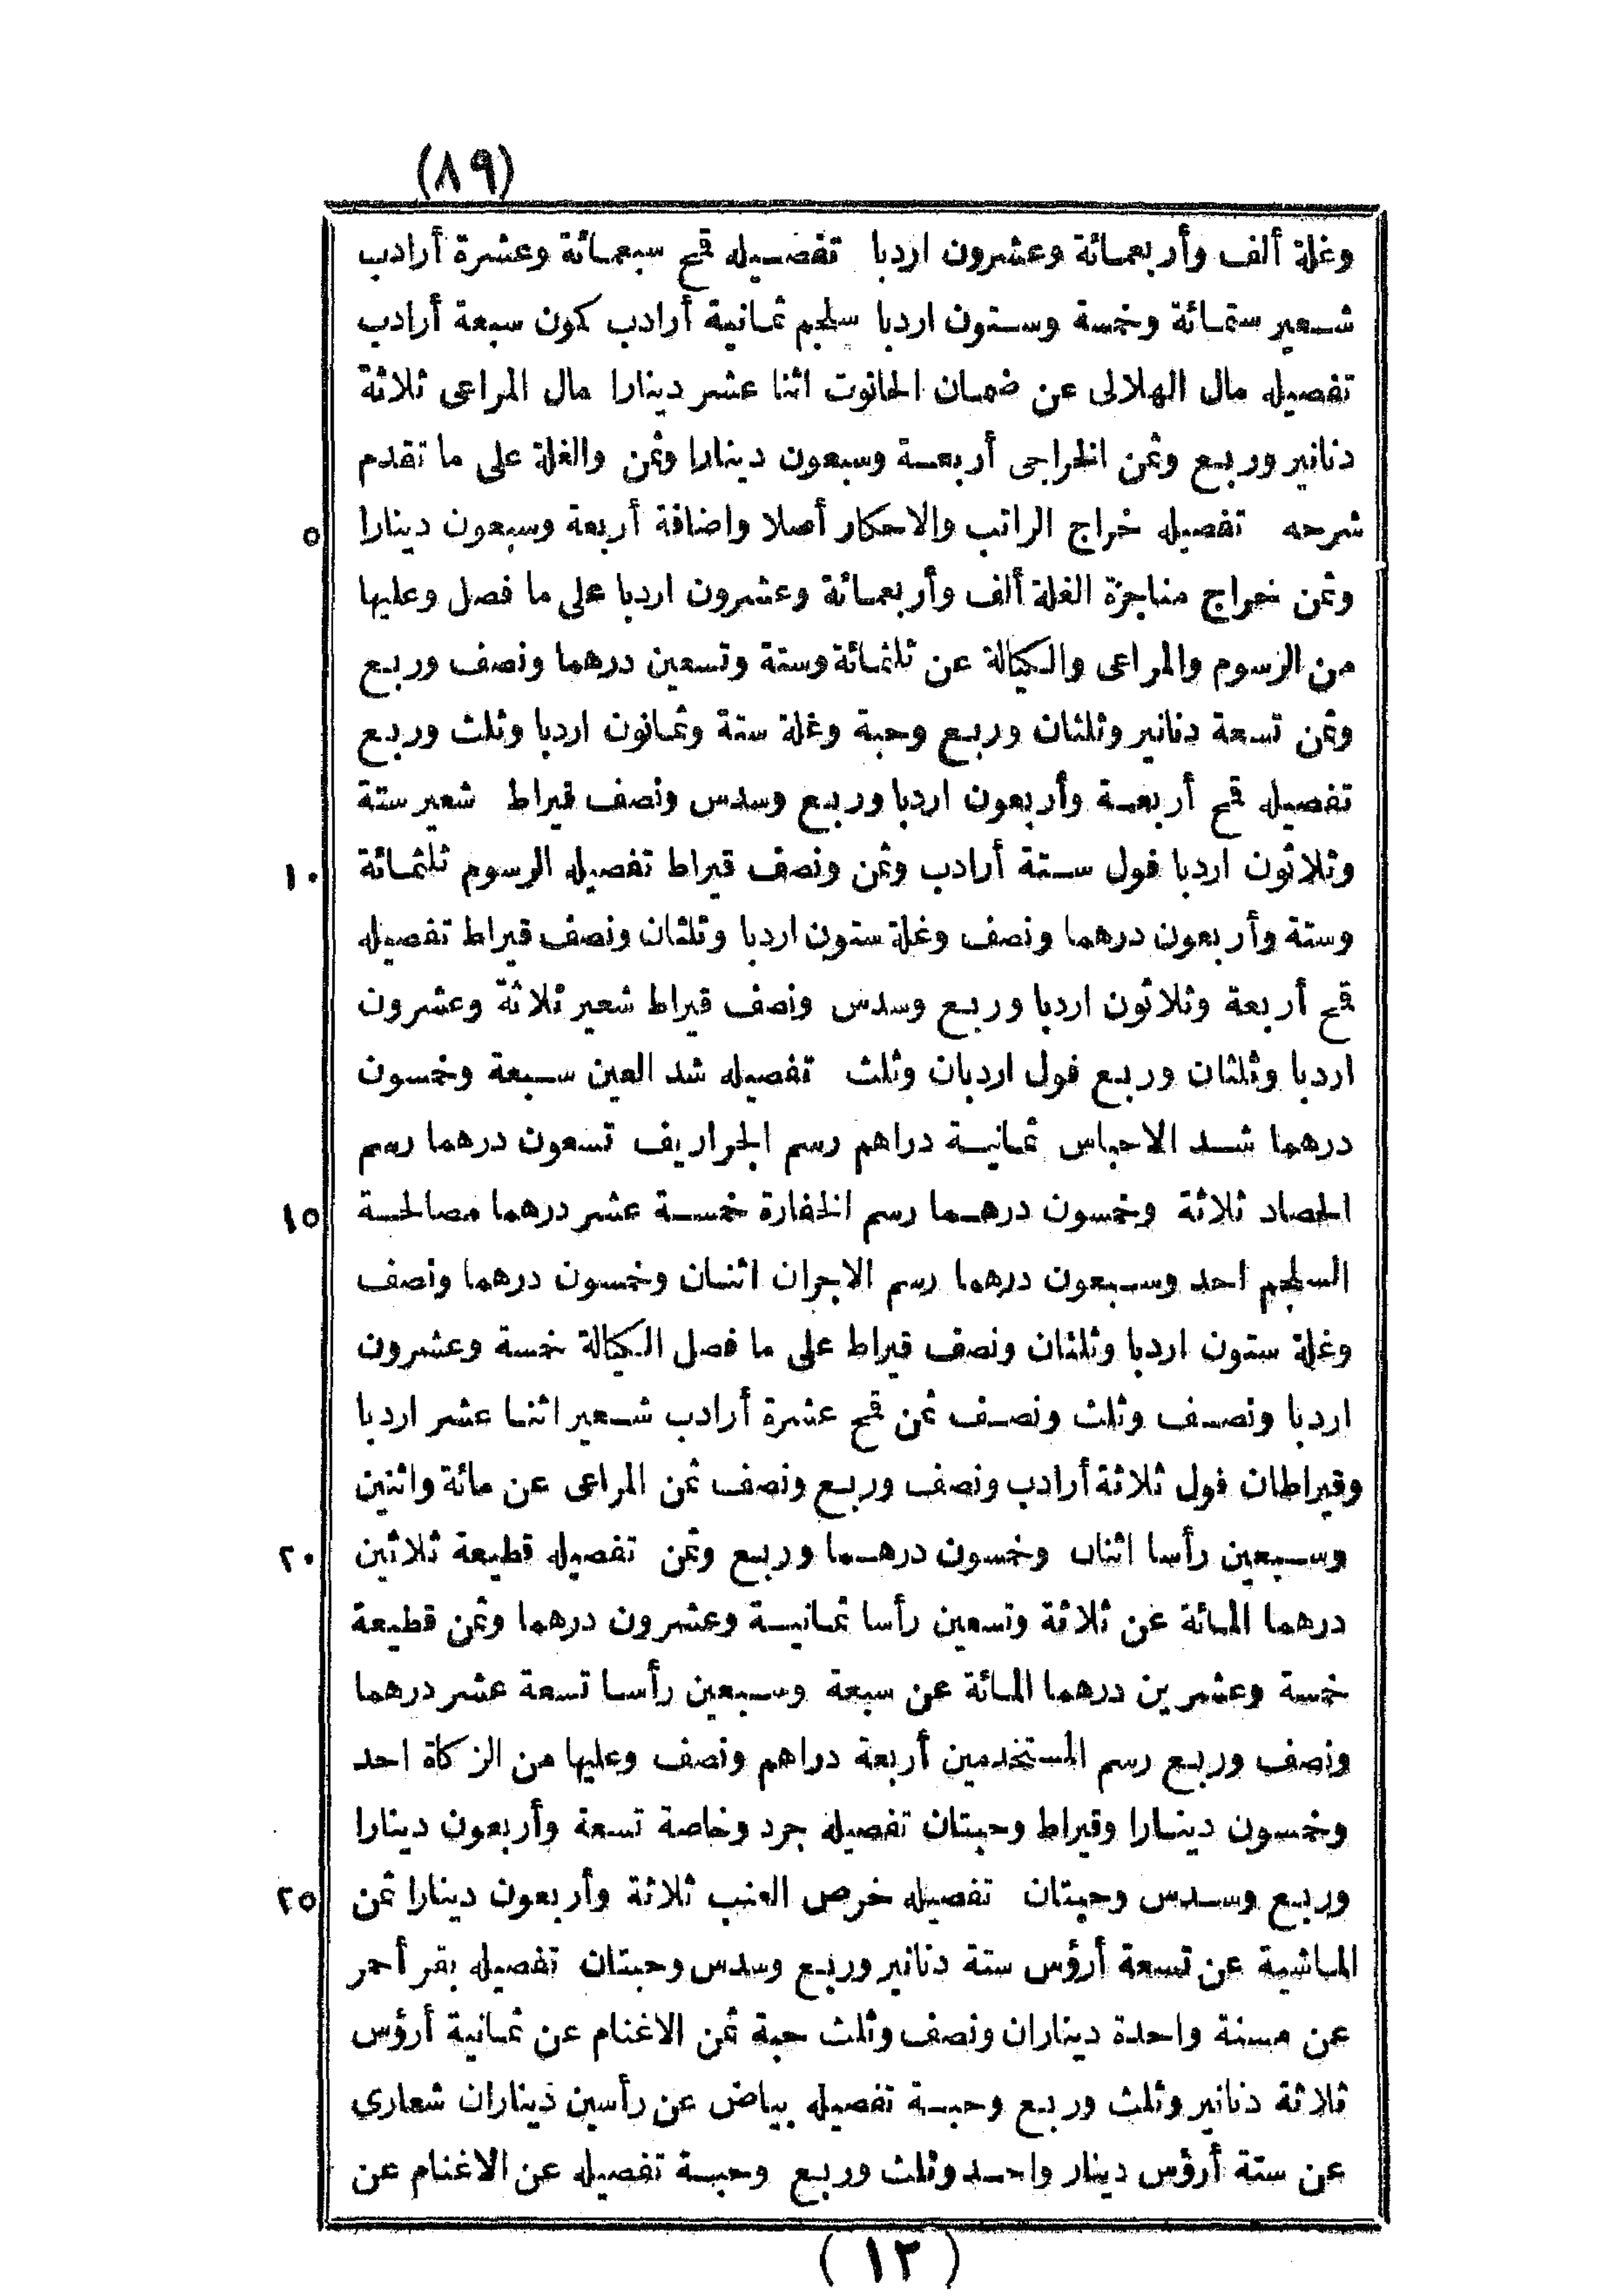 (٨٩)
وغلة ألف وأربعمائة وعشرون اردبا تفصيله قمح سبعمائة وعشرة أرادب
شعير ستمائة وخمسة وستون اردبا سلجم ثمانية أرادب كون سبعة أرادب
تفصيله مال الهلالى عن ضمان الحانوت اثنا عشر دينارا مال المراعى ثلاثة
دنانير وربع وثمن الخراجى أربعة وسبعون دينارا وثمن والغلة على ما تقدم
شرحه تفصيله خراج الراتب والاحكار أصلا واضافة أربعة وسبعون دينارا
٥
وثمن خراج مناجزة الغلة ألف وأربعمائة وعشرون اردبا على ما فصل وعليها
من الرسوم والمراعى والكيالة عن ثلثمائة وستة وتسعين درهما ونصف وربع
وثمن تسعة دنانير وثلثان وربع وحبة وغلة ستة وثمانون اردبا وثلث وربع
تفصيله قمح أربعة وأربعون اردبا وربع وسدس ونصف قيراط شعير ستة
وثلاثون اردبا فول ستة أرادب وثمن ونصف قيراط تفصيله الرسوم ثلثمائة
١٠
وستة وأربعون درهما ونصف وغلة ستون اردبا وثلثان ونصف قيراط تفصيله
قمح أربعة وثلاثون اردبا وربع وسدس ونصف قيراط شعير ثلاثة وعشرون
اردبا وثلثان وربع فول اردبان وثلث تفصيله شد العين سبعة وخمسون
درهما شد الاحباس ثمانية دراهم رسم الجراريف تسعون درهما رسم
الحصاد ثلاثة وخمسون درهما رسم الخفارة خمسة عشر درهما مصالحة
١٥
السلجم احد وسبعون درهما رسم الاجران اثنان وخمسون درهما ونصف
وغلة ستون اردبا وثلثان ونصف قيراط على ما فصل الكيالة خمسة وعشرون
اردبا ونصف وثلث ونصف ثمن قمح عشرة أرادب شعير اثنا عشر اردبا
وقيراطان فول ثلاثة أرادب ونصف وربع ونصف ثمن المراعى عن مائة واثنين
وسبعين رأسا اثنان وخمسون درهما وربع وثمن تفصيله قطيعة ثلاثين
٢٠
درهما المائة عن ثلاثة وتسعين رأسا ثمانية وعشرون درهما وثمن قطيعة
خمسة وعشرين درهما المائة عن سبعة وسبعين رأسا تسعة عشر درهما
ونصف وربع رسم المستخدمين أربعة دراهم ونصف وعليها من الزكاة احد
وخمسون دينارا وقيراط وحبتان تفصيله جرد وخاصة تسعة وأربعون دينارا
وربع وسدس وحبتان تفصيله خرص العنب ثلاثة وأربعون دينارا ثمن
٢٥
الماشية عن تسعة أرؤس ستة دنانير وربع وسدس وحبتان تفصيله بقر أحمر
عن مسنة واحدة ديناران ونصف وثلث حبة ثمن الاغنام عن ثمانية أرؤس
ثلاثة دنانير وثلث وربع وحبة تفصيله بياض عن رأسين ديناران شعارى
عن ستة أرؤس دينار واحد وثلث وربع وحبة تفصيله عن الاغنام عن
(١٢)